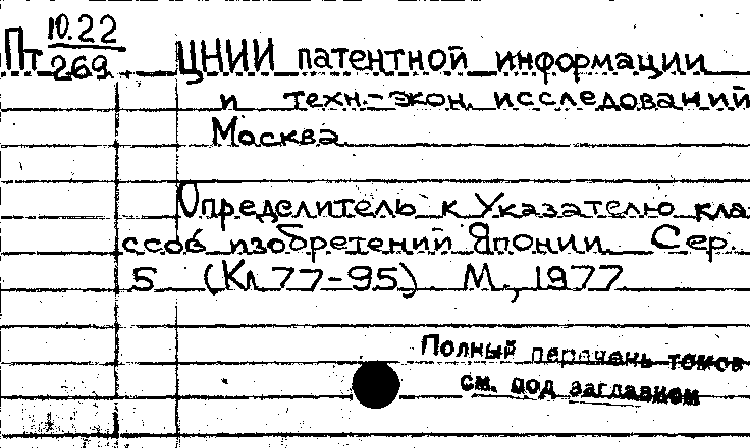 Пт 10.22
269
ЦНИИ патентной информации
и техн.-экон. исследований
Москва
Определитель к Указателю кла-
ссов изобретений Японии. Сер.
5 (Кл 77-95). М., 1977
Полный перечень томов
см. под заглавием